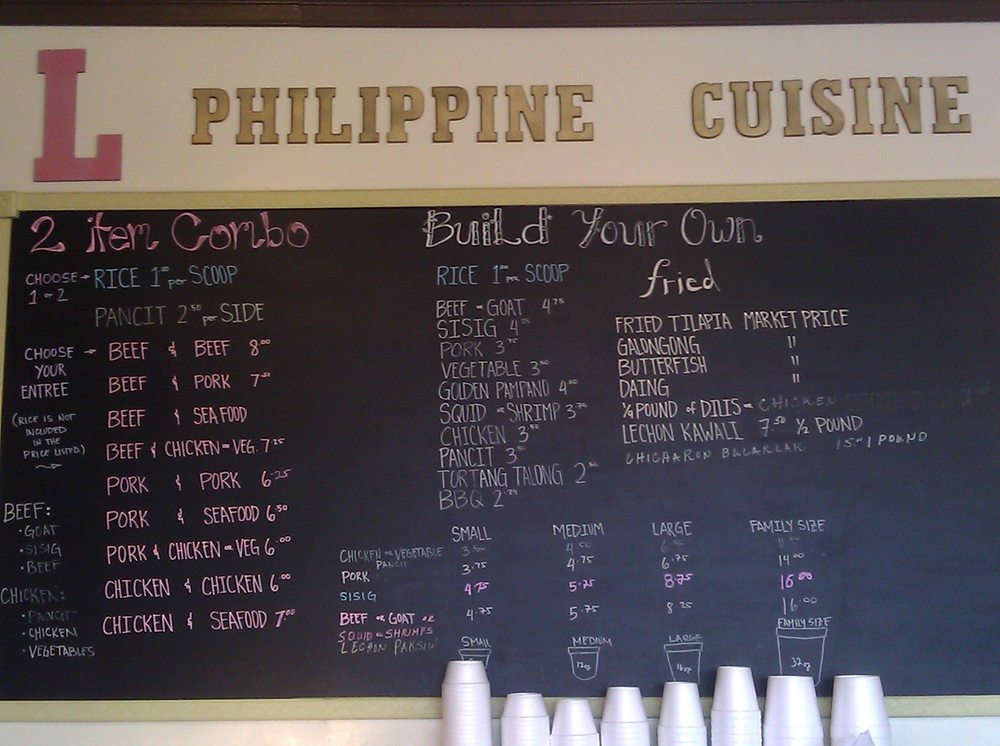 L PHILIPPINE CUISINE
2 item Combo
CHOOSE → RICE 1.00 per SCOOP
1 or 2
PANCIT 2.50 per SIDE
CHOOSE → BEEF & BEEF 8.00
YOUR
ENTREE
BEEF & PORK 7.50
(RICE IS NOT
INCLUDED
IN THE
PRICE LISTED)
BEEF & SEAFOOD
BEEF & CHICKEN or VEG. 7.25
PORK & PORK 6.25
PORK & SEAFOOD 6.50
PORK & CHICKEN or VEG 6.00
CHICKEN & CHICKEN 6.00
CHICKEN & SEAFOOD 7.00
BEEF:
• GOAT
• SISIG
• BEEF
CHICKEN:
• PANCIT
• CHICKEN
• VEGETABLES
Build Your Own
RICE 1.00 per SCOOP
BEEF or GOAT 4.75
SISIG
PORK 3.75
VEGETABLE 3.50
GOLDEN PAMPANO 4.00
SQUID or SHRIMP
CHICKEN 3.50
PANCIT 3.50
TORTANG TALONG 2.50
BBQ
fried
FRIED TILAPIA MARKET PRICE
GALONGONG "
BUTTERFISH "
DAING "
1/4 POUND of DILIS - CHICKEN
LECHON KAWALI 7.50 1/2 POUND
CHICHARON BULAKLAK 15.00 1 POUND
SMALL MEDIUM LARGE FAMILY SIZE
CHICKEN or VEGETABLE 3.50 4.50
PANCIT
PORK 3.75 4.75 6.75 14.00
SISIG 4.75 5.75 8.75 16.00
BEEF or GOAT or 4.75 5.75 8.25 16.00
SQUID or SHRIMPS
LECHON PAKSIW
SMALL MEDIUM LARGE FAMILY SIZE
12oz 16oz 32oz